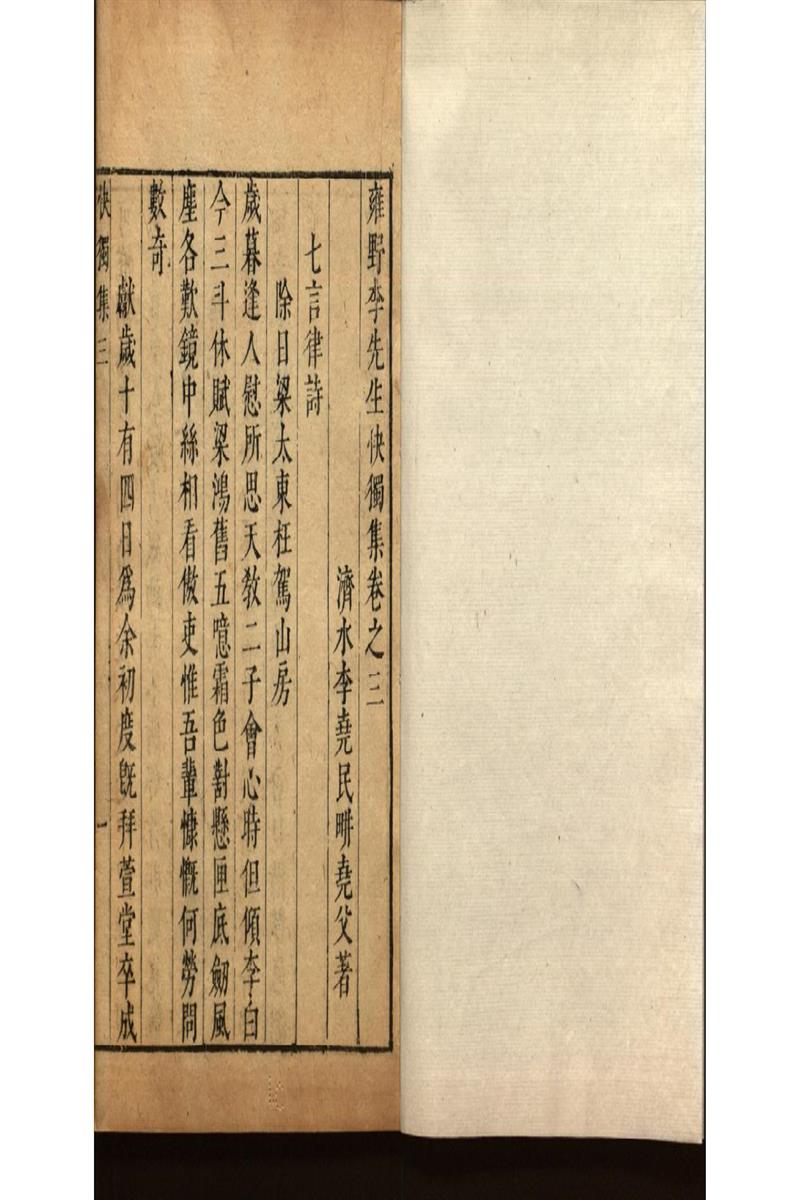 雍野李先生快獨集卷之三
濟水李堯民畊堯父著
七言律詩
除日梁太東枉駕山房
歲暮逢人慰所思天教二子會心時但傾李白
今三斗休賦梁鴻舊五噫霜色對懸匣底劒風
塵各歎鏡中絲相看傲吏惟吾輩慷慨何勞問
數奇
獻歲十有四日爲余初度旣拜萱堂卒成
快獨集三
一